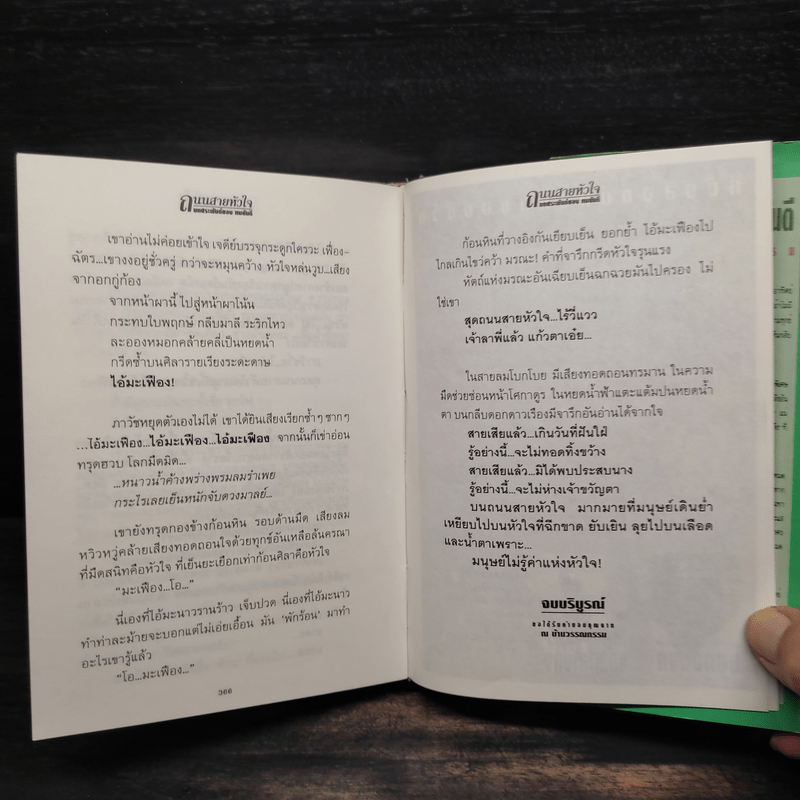 ถนนสายหัวใจ
บทประพันธ์ของ ทมยันตี
เขาอ่านไม่ค่อยเข้าใจ เจดีย์บรรจุกระดูกใครวะ เฟื่อง–
ฉัตร...เขางงอยู่ชั่วครู่ กว่าจะหมุนคว้าง หัวใจหล่นวูบ...เสียง
จากอกกู่ก้อง
จากหน้าผานี้ ไปสู่หน้าผาโน้น
กระทบใบพฤกษ์ กลีบมาลี ระริกไหว
ละอองหมอกคล้ายคลี่เป็นหยดน้ำ
กรีดซ้ำบนศิลารายเรียงระดะดาษ
ไอ้มะเฟือง!
ภาวัชหยุดตัวเองไม่ได้ เขาได้ยินเสียงเรียกซ้ำๆ ซากๆ
...ไอ้มะเฟือง...ไอ้มะเฟือง...ไอ้มะเฟือง จากนั้นก็เข่าอ่อน
ทรุดฮวบ โลกมืดมิด...
...หนาวน้ำค้างพร่างพรมลมรำเพย
กระไรเลยเย็นหนักจับดวงมาลย์...
เขายังทรุดกองข้างก้อนหิน รอบด้านมืด เสียงลม
หวิวหวู่คล้ายเสียงทอดถอนใจด้วยทุกข์อันเหลือล้นครณา
ที่มืดสนิทคือหัวใจ ที่เย็นยะเยือกเท่าก้อนศิลาคือหัวใจ
“มะเฟือง...โอ...”
นี่เองที่ไอ้มะนาวรานร้าว เจ็บปวด นี่เองที่ไอ้มะนาว
ทำท่าละม้ายจะบอกแต่ไม่เอ่ยเอื้อน มัน ‘พักร้อน’ มาทำ
อะไรเขารู้แล้ว
“โอ...มะเฟือง...”
366
ถนนสายหัวใจ
บทประพันธ์ของ ทมยันตี
ก้อนหินที่วางอิงกันเยียบเย็น ยอกย้ำ โอ้มะเฟืองไป
ไกลเกินไขว่คว้า มรณะ! คำที่จารึกกรีดหัวใจรุนแรง
หัตถ์แห่งมรณะอันเฉียบเย็นฉกฉวยมันไปครอง ไม่
ใช่เขา
สุดถนนสายหัวใจ...ไร้วี่แวว
เจ้าลาพี่แล้ว แก้วตาเอ๋ย...
ในสายลมโบกโบย มีเสียงทอดถอนทรมาน ในความ
มืดช่วยซ่อนหน้าโศกาดูร ในหยดน้ำฟ้าแตะแต้มปนหยดน้ำ
ตา บนกลีบดอกดาวเรืองมีจารึกอันอ่านได้จากใจ
สายเสียแล้ว...เกินวันที่ฝันใฝ่
รู้อย่างนี้...จะไม่ทอดทิ้งขว้าง
สายเสียแล้ว...มิได้พบประสบนาง
รู้อย่างนี้...จะไม่ห่างเจ้าขวัญตา
บนถนนสายหัวใจ มากมายที่มนุษย์เดินย่ำ
เหยียบไปบนหัวใจที่ฉีกขาด ยับเยิน ลุยไปบนเลือด
และน้ำตาเพราะ...
มนุษย์ไม่รู้ค่าแห่งหัวใจ!
จบบริบูรณ์
ขอได้รับคำขอบคุณจาก
ณ บ้านวรรณกรรม